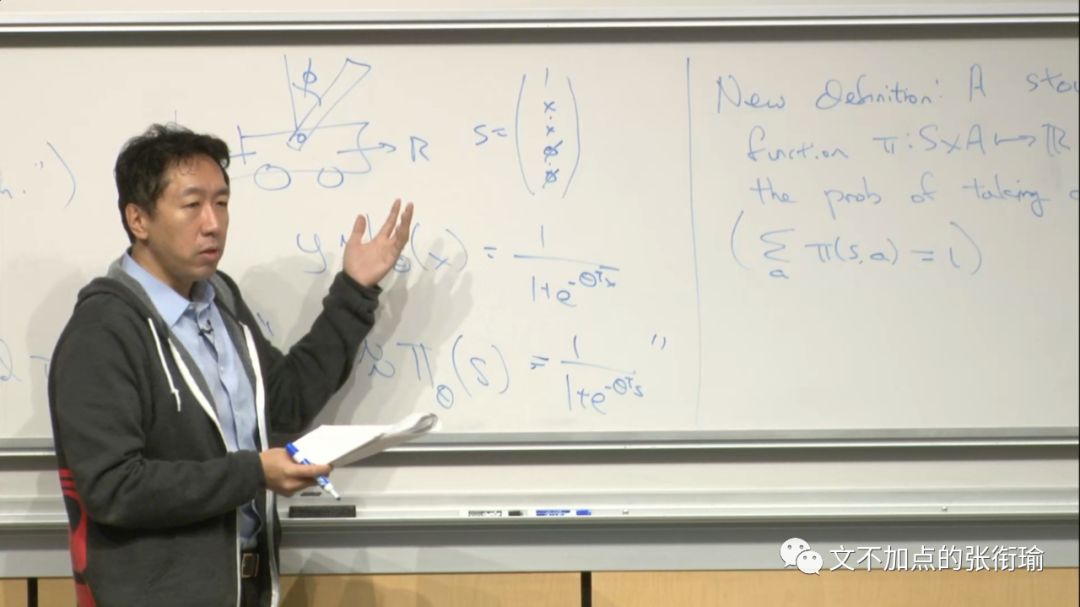 φ
R
S = ( 1 x ẋ φ φ̇ )
h.")
y ≈ h_θ(x) = 1 / (1+e^{-θ^T x})
≈ π_θ(s) = 1 / (1+e^{-θ^T s}) "
New definition: A
function π: S×A ↦ ℝ
the prob of taking
( Σ_a π(s,a) = 1 )
文不加点的张衔瑜